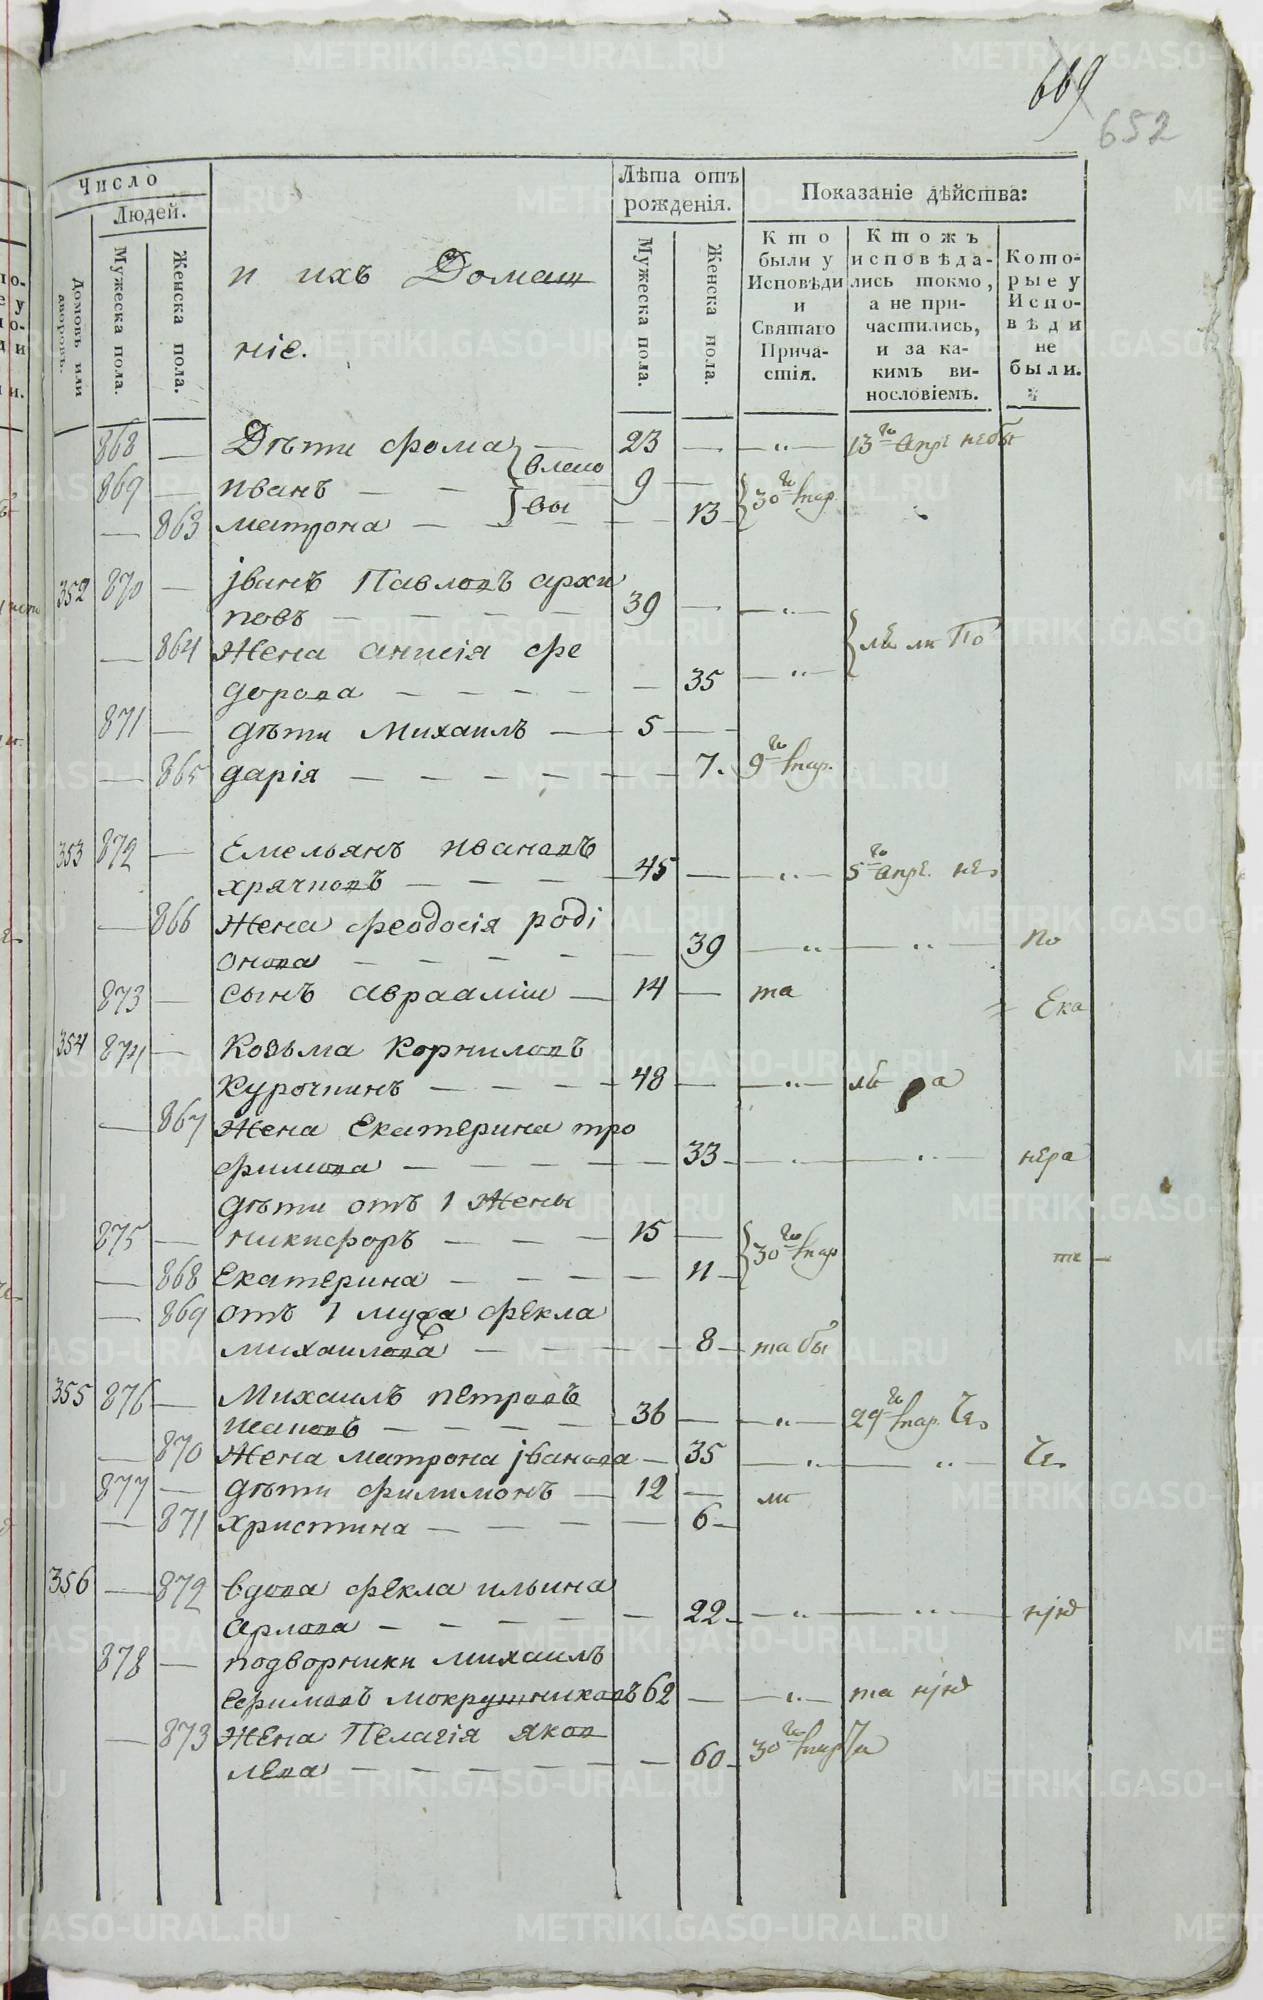 669
652
Число
Людей.
Домовъ или дворовъ.
Мужеска пола.
Женска пола.
и ихъ Домаш
ніе.
Лѣта отъ
рожденія.
Мужеска пола.
Женска пола.
Показаніе дѣйства:
Кто
были у
Исповѣди
и
Святаго
Прича-
стія.
Ктожъ
исповѣда-
лись токмо,
а не при-
частились,
и за ка-
кимъ ви-
нословіемъ.
Кото-
рые у
Испо-
вѣди
не
были.
868 — Дѣти фома — 23 — — „ — 13 го апре небы
869 — иванъ — — 9 — 30 го мар.
— 863 матрона — — — — 13
352 870 — јванъ Павловъ архи
повъ — — — — 39 — — „ —
— 864 Жена анисія фе
дорова — — — — — 35 — „ —
871 — дѣти Михаилъ — 5 —
— 865 дарія — — — — — 7. 9 го мар.
353 872 — Емельянъ ивановъ
хрячковъ — — — — 45 — — „ — 5 го апре.
— 866 Жена феодосія роді
онова — — — — — 39 — „ — „ — по
873 — сынъ авраамій — 14 — та
Ека
354 874 — Козьма Корниловъ
Курочкинъ — — — — 48 — — „ —
— 867 Жена Екатерина тро
фимова — — — — — 33 — „ — „ — нера
дѣти отъ 1 Жены
875 — никифоръ — — — 15 — 30 го мар
— 868 Екатерина — — — — 11
— 869 отъ 1 мужа фекла
михаилова — — — — 8 — та бы
355 876 — Михаилъ петровъ
— — — — 36 — — „ — 29 го мар. Че
— 870 Жена матрона јванова — 35 — „ — „ — Че
877 — дѣти филимонъ — 12 — ли
— 871 христина — — — — — 6
356 — 872 вдова фекла ильина
арлова — — — — — 22 — „ — „ —
878 — подворники михаилъ
Ефимовъ мокрушниковъ 62 — — „ — та
— 873 Жена Пелагія яков
лева — — — — — — 60 30 го мар